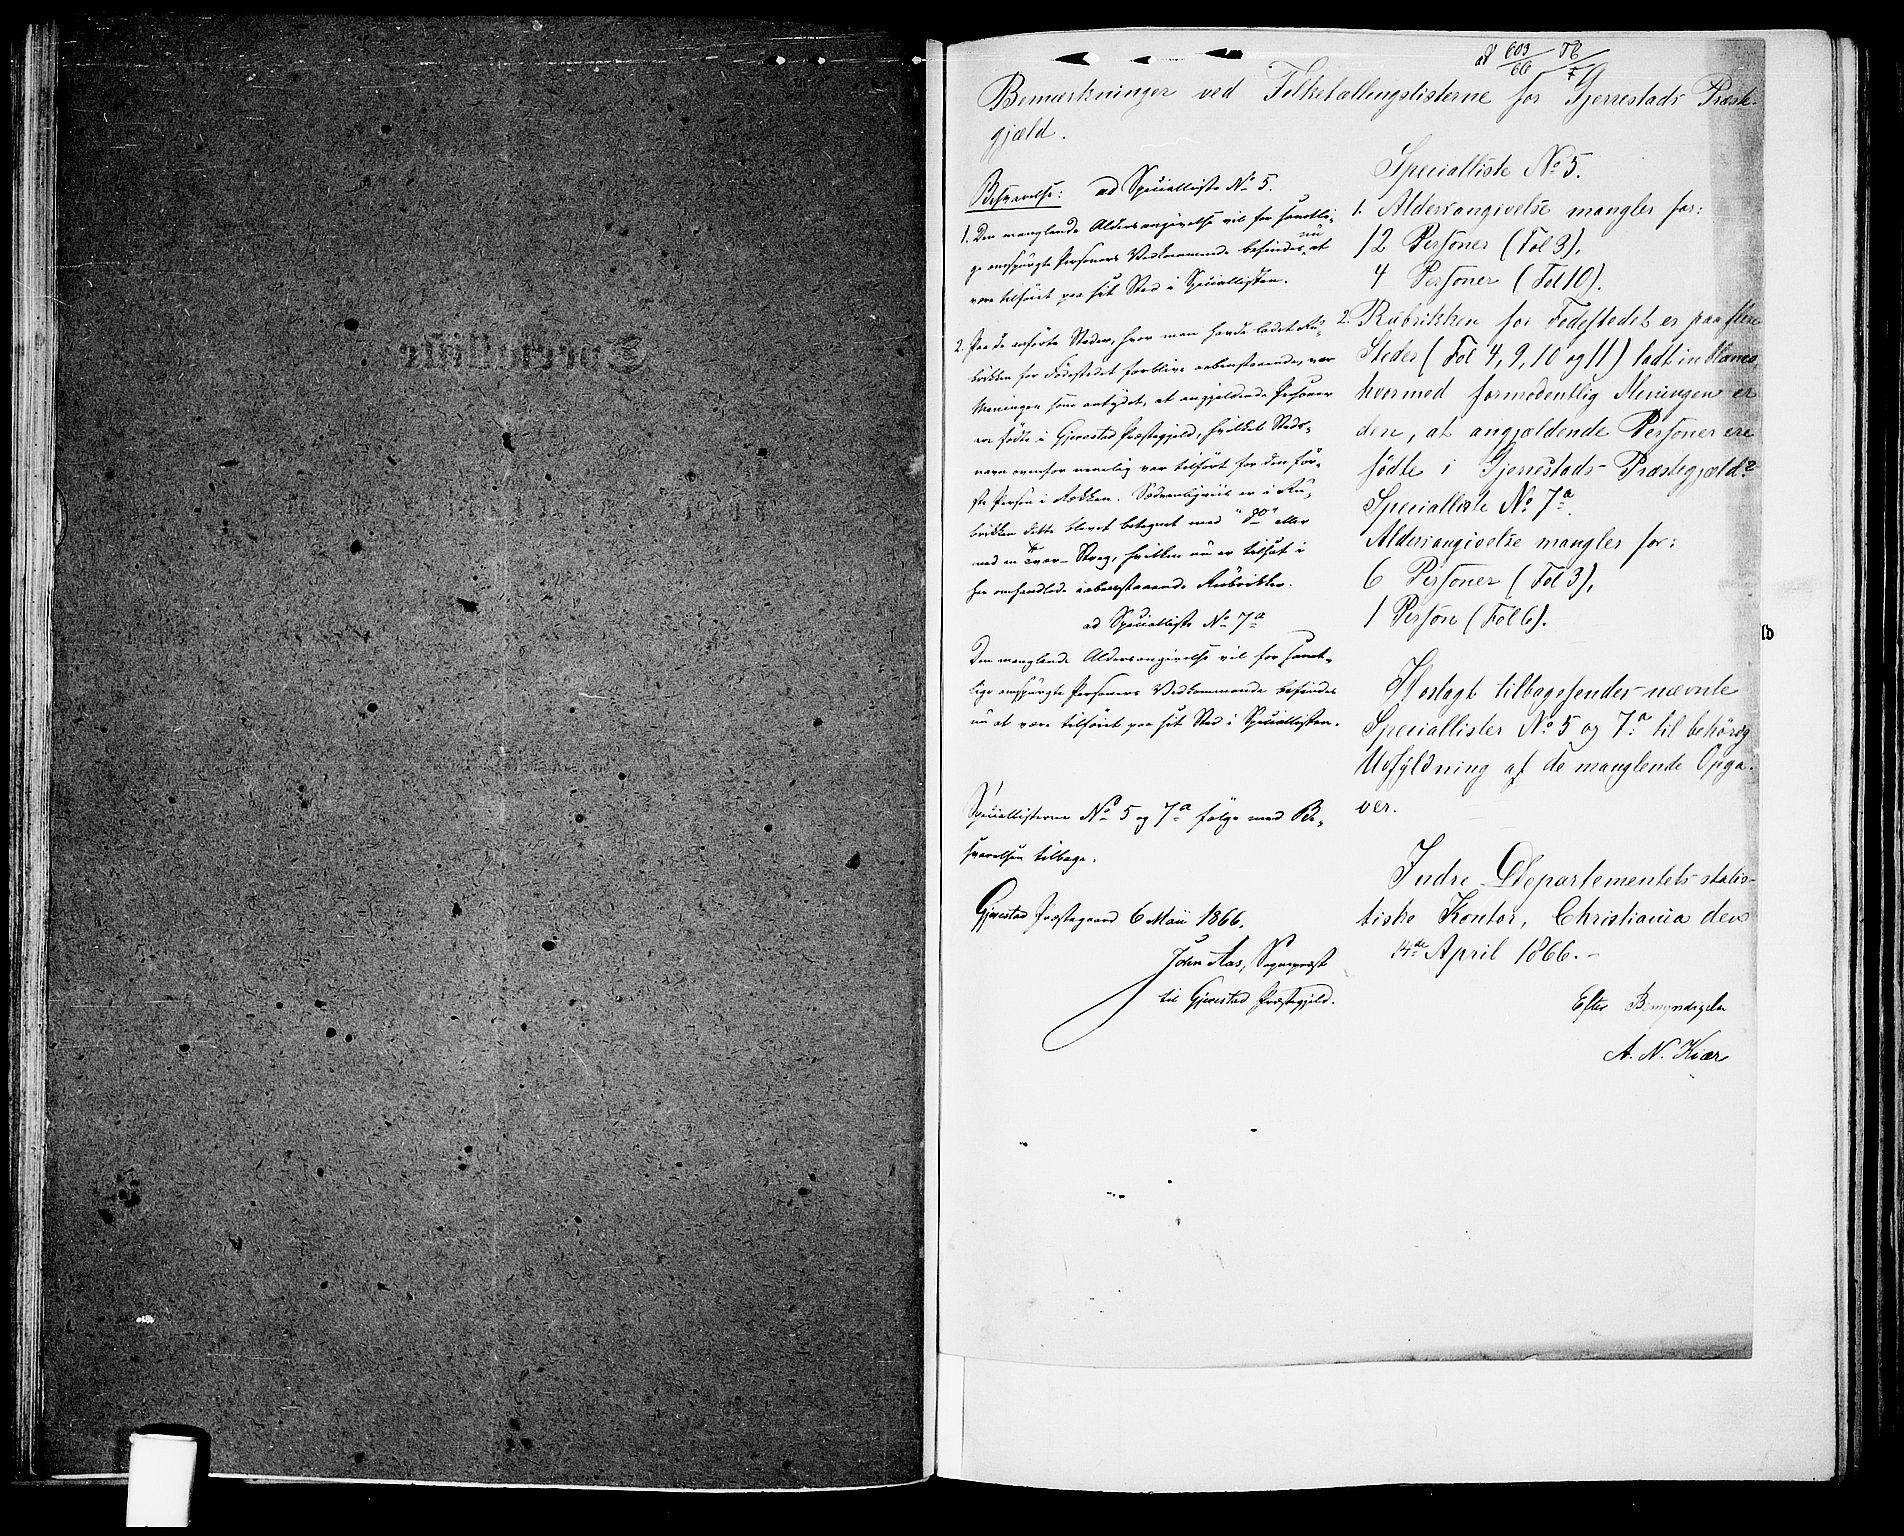 ad 603/66 
Bemærkninger ved Folketællingslisterne for Gjerrestads Præste-
gjæld.
Specialliste No 5.
1. Aldersangivelse mangler for:
12 Personer (Fol 3),
4 Personer (Fol 10).
2. Rubrikken for Fødestedet er paa flere
Steder (Fol 4, 9, 10 og 11) ladt in blanco,
hvormed formodentlig Meningen er
den, at angjældende Personer ere
fødte i Gjerrestads Præstegjæld?
Specialliste No 7a.
Aldersangivelse mangler for:
6 Personer (Fol 3),
1 Person (Fol 6).
Hoslagt tilbagesendes nævnte
Speciallister No 5 og 7a til behørig
Udfyldning af de manglende Opga-
ver.
Indre Departementets statis-
tiske Kontor, Christiania den
14de April 1866.-
Efter Bemyndigelse
A. N. Kiær
Besvarelse: ad Specialliste No 5.
1. Den manglende Aldersangivelse vil for samtli-
ge omspurgte Personers Vedkommende befindes nu at
være tilføiet paa sit Sted i Speciallisten.
2. Paa de anførte Steder, hvor man havde ladet Ru-
brikken for Fødestedet forblive aabenstaaende, var
Meningen som antydet, at angjeldende Personer
ere fødte i Gjerestad Præstegjeld, hvilket Steds-
navn ovenfor nemlig var tilført for den før-
ste Person i Rækken. Sædvanligviis er i Ru-
brikken dette blevet betegnet med "do" eller
med en Tvær-Streg, hvilken nu er tilsat i
her omhandlede aabenstaaende Rubrikker.
ad Specialliste No 7a
Den manglende Aldersangivelse vil for samt-
lige omspurgte Personers Vedkommende befindes
nu at være tilføiet paa sit Sted i Speciallisten.
Speciallisterne No 5 og 7a følge med Be-
svarelsen tilbage.
Gjerestad Præstegaard 6 Mai 1866.
John Aas, Sognepræst
til Gjerestad Præstegjeld.